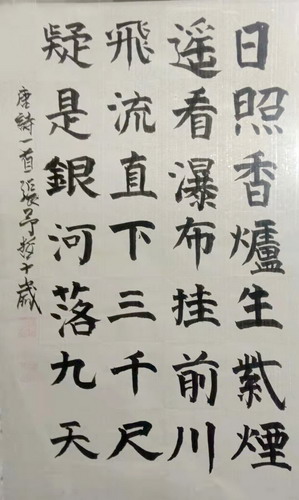 日照香爐生紫煙
遥看瀑布挂前川
飛流直下三千尺
疑是銀河落九天
唐詩一首張予哲十歲